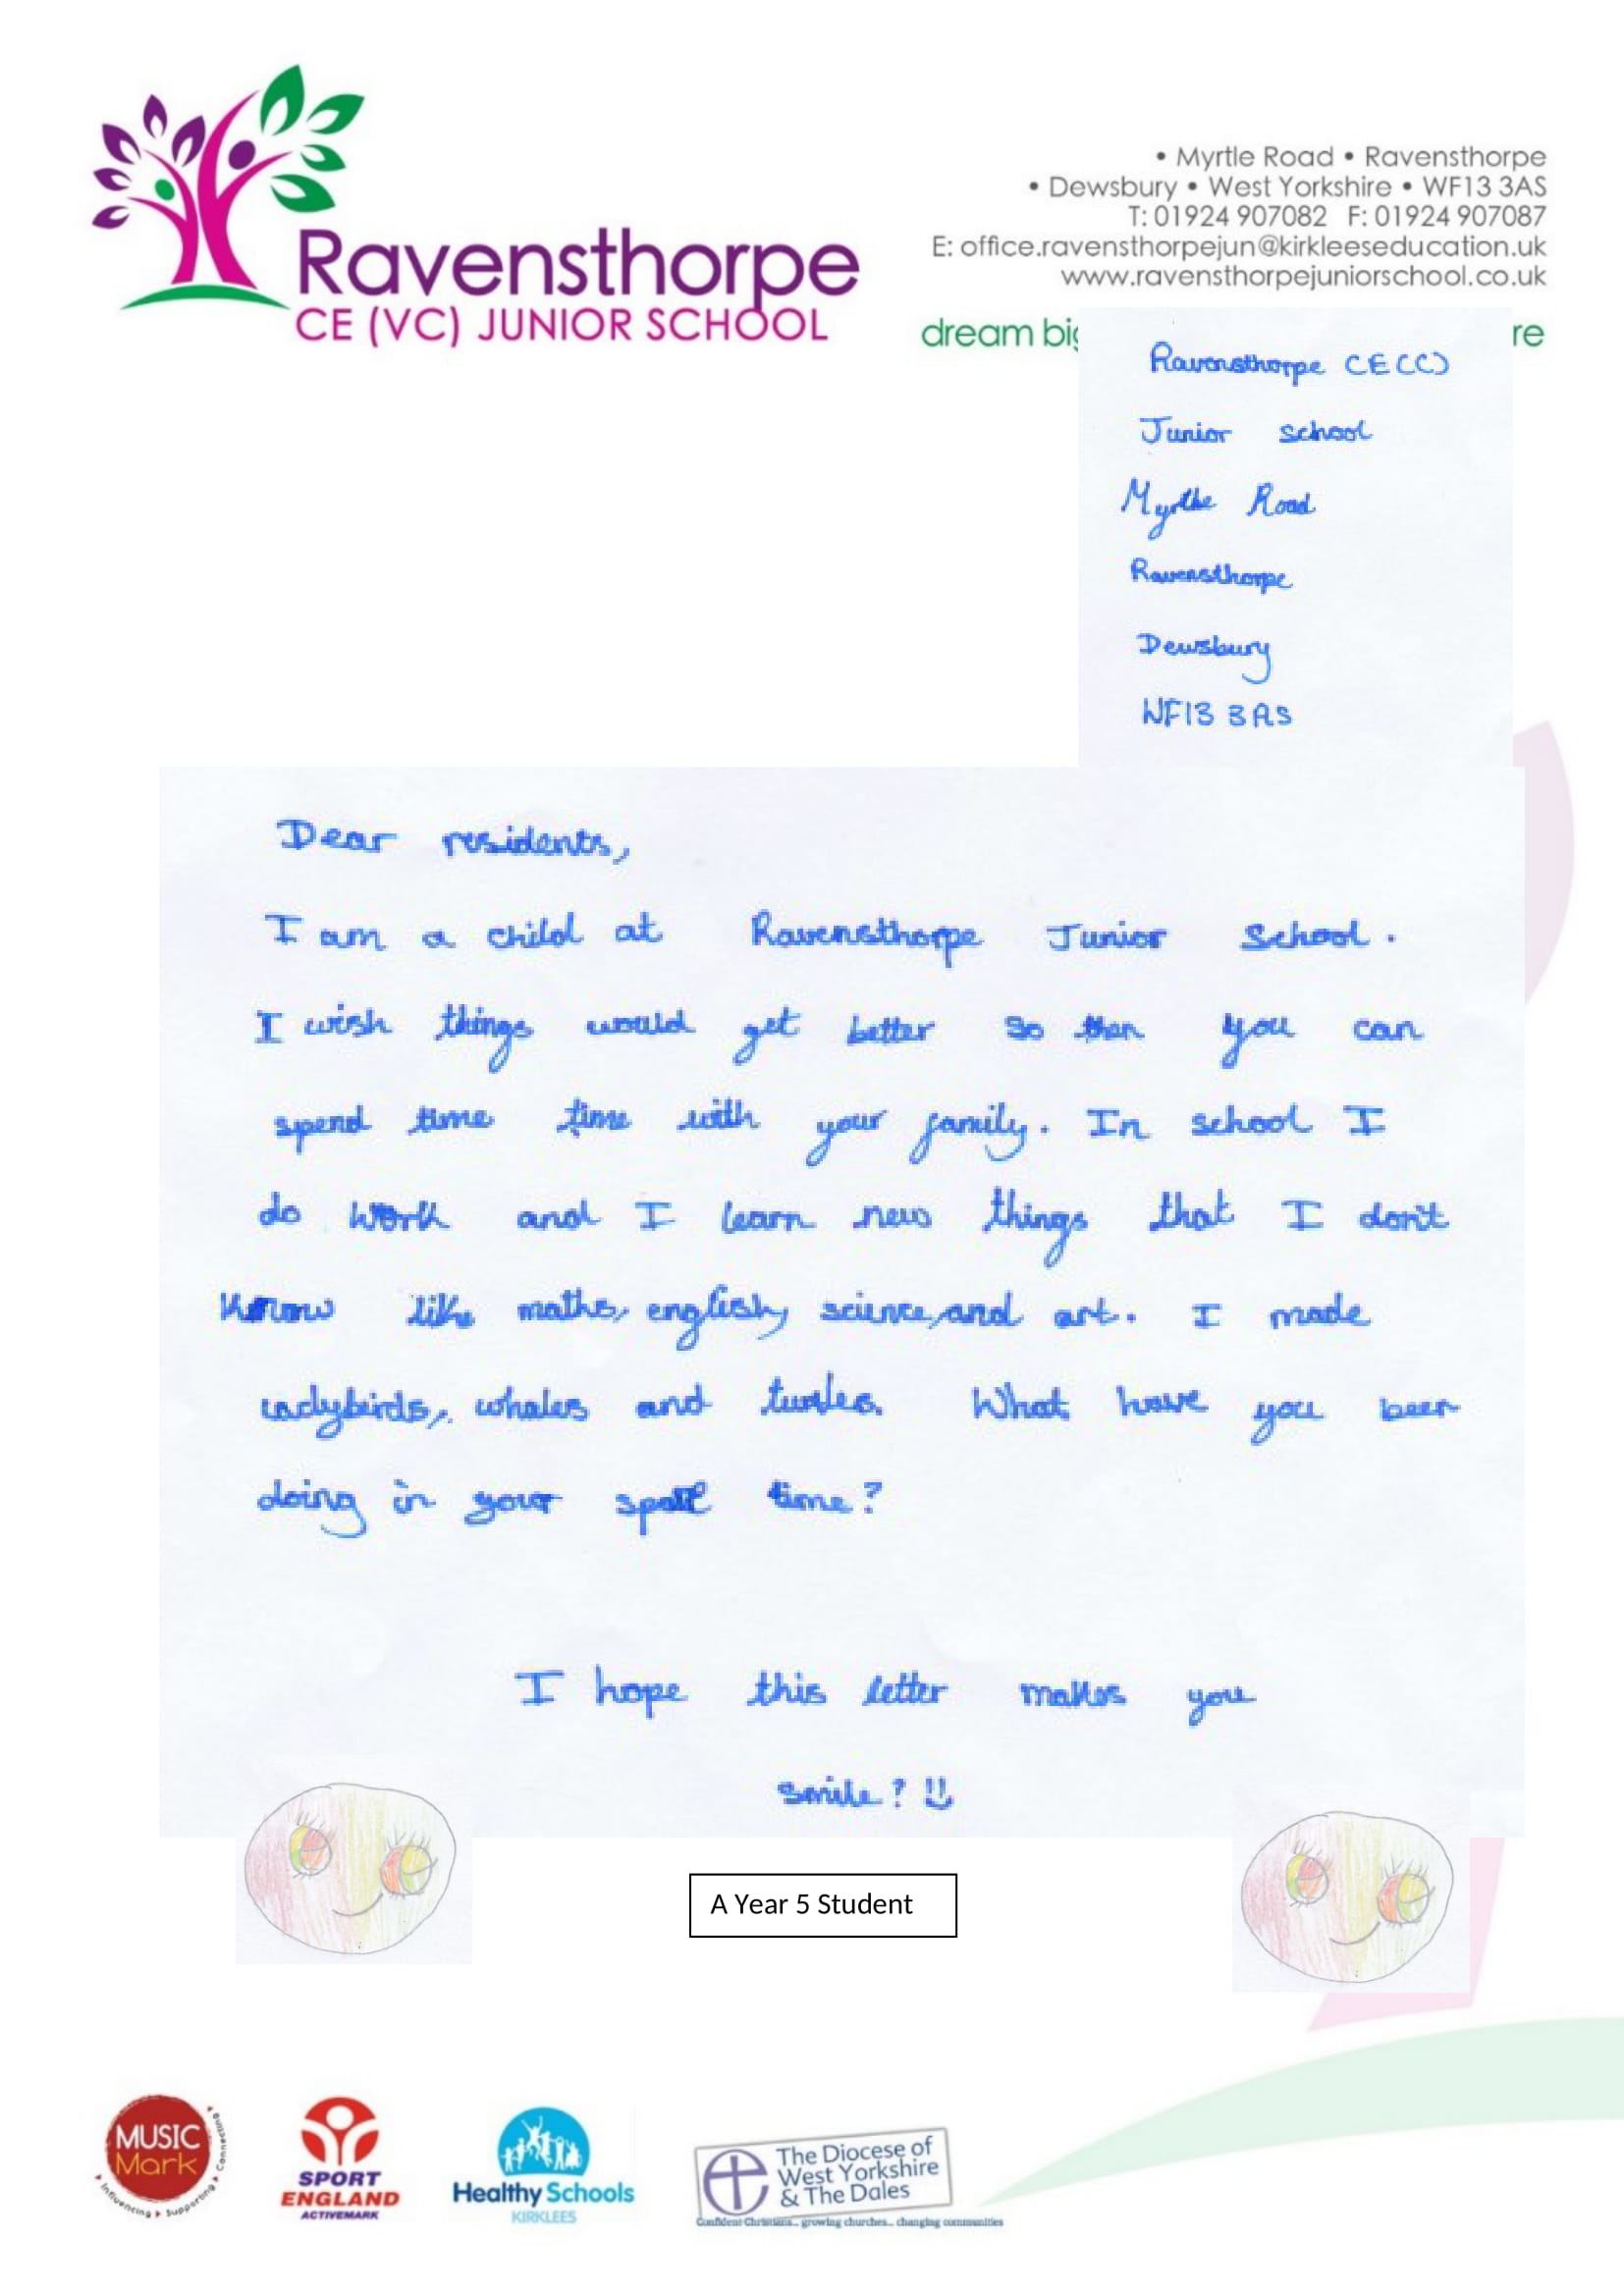 Ravensthorpe
CE (VC) JUNIOR SCHOOL
• Myrtle Road • Ravensthorpe
• Dewsbury • West Yorkshire • WF13 3AS
T: 01924 907082 F: 01924 907087
E: office.ravensthorpejun@kirkleeseducation.uk
www.ravensthorpejuniorschool.co.uk
dream big re
Ravensthorpe CE (C)
Junior school
Myrtle Road
Ravensthorpe
Dewsbury
WF13 3AS
Dear residents,
I am a child at Ravensthorpe Junior School.
I wish things would get better so then you can
spend time time with your family. In school I
do work and I learn new things that I don't
know like maths, english, science, and art. I made
ladybirds, whales and turtles. What have you been
doing in your spare time?
I hope this letter makes you
smile?
A Year 5 Student
MUSIC
Mark
Influencing Supporting Connecting
SPORT
ENGLAND
ACTIVEMARK
Healthy Schools
KIRKLEES
The Diocese of
West Yorkshire
& The Dales
Confident Christians... growing churches... changing communities